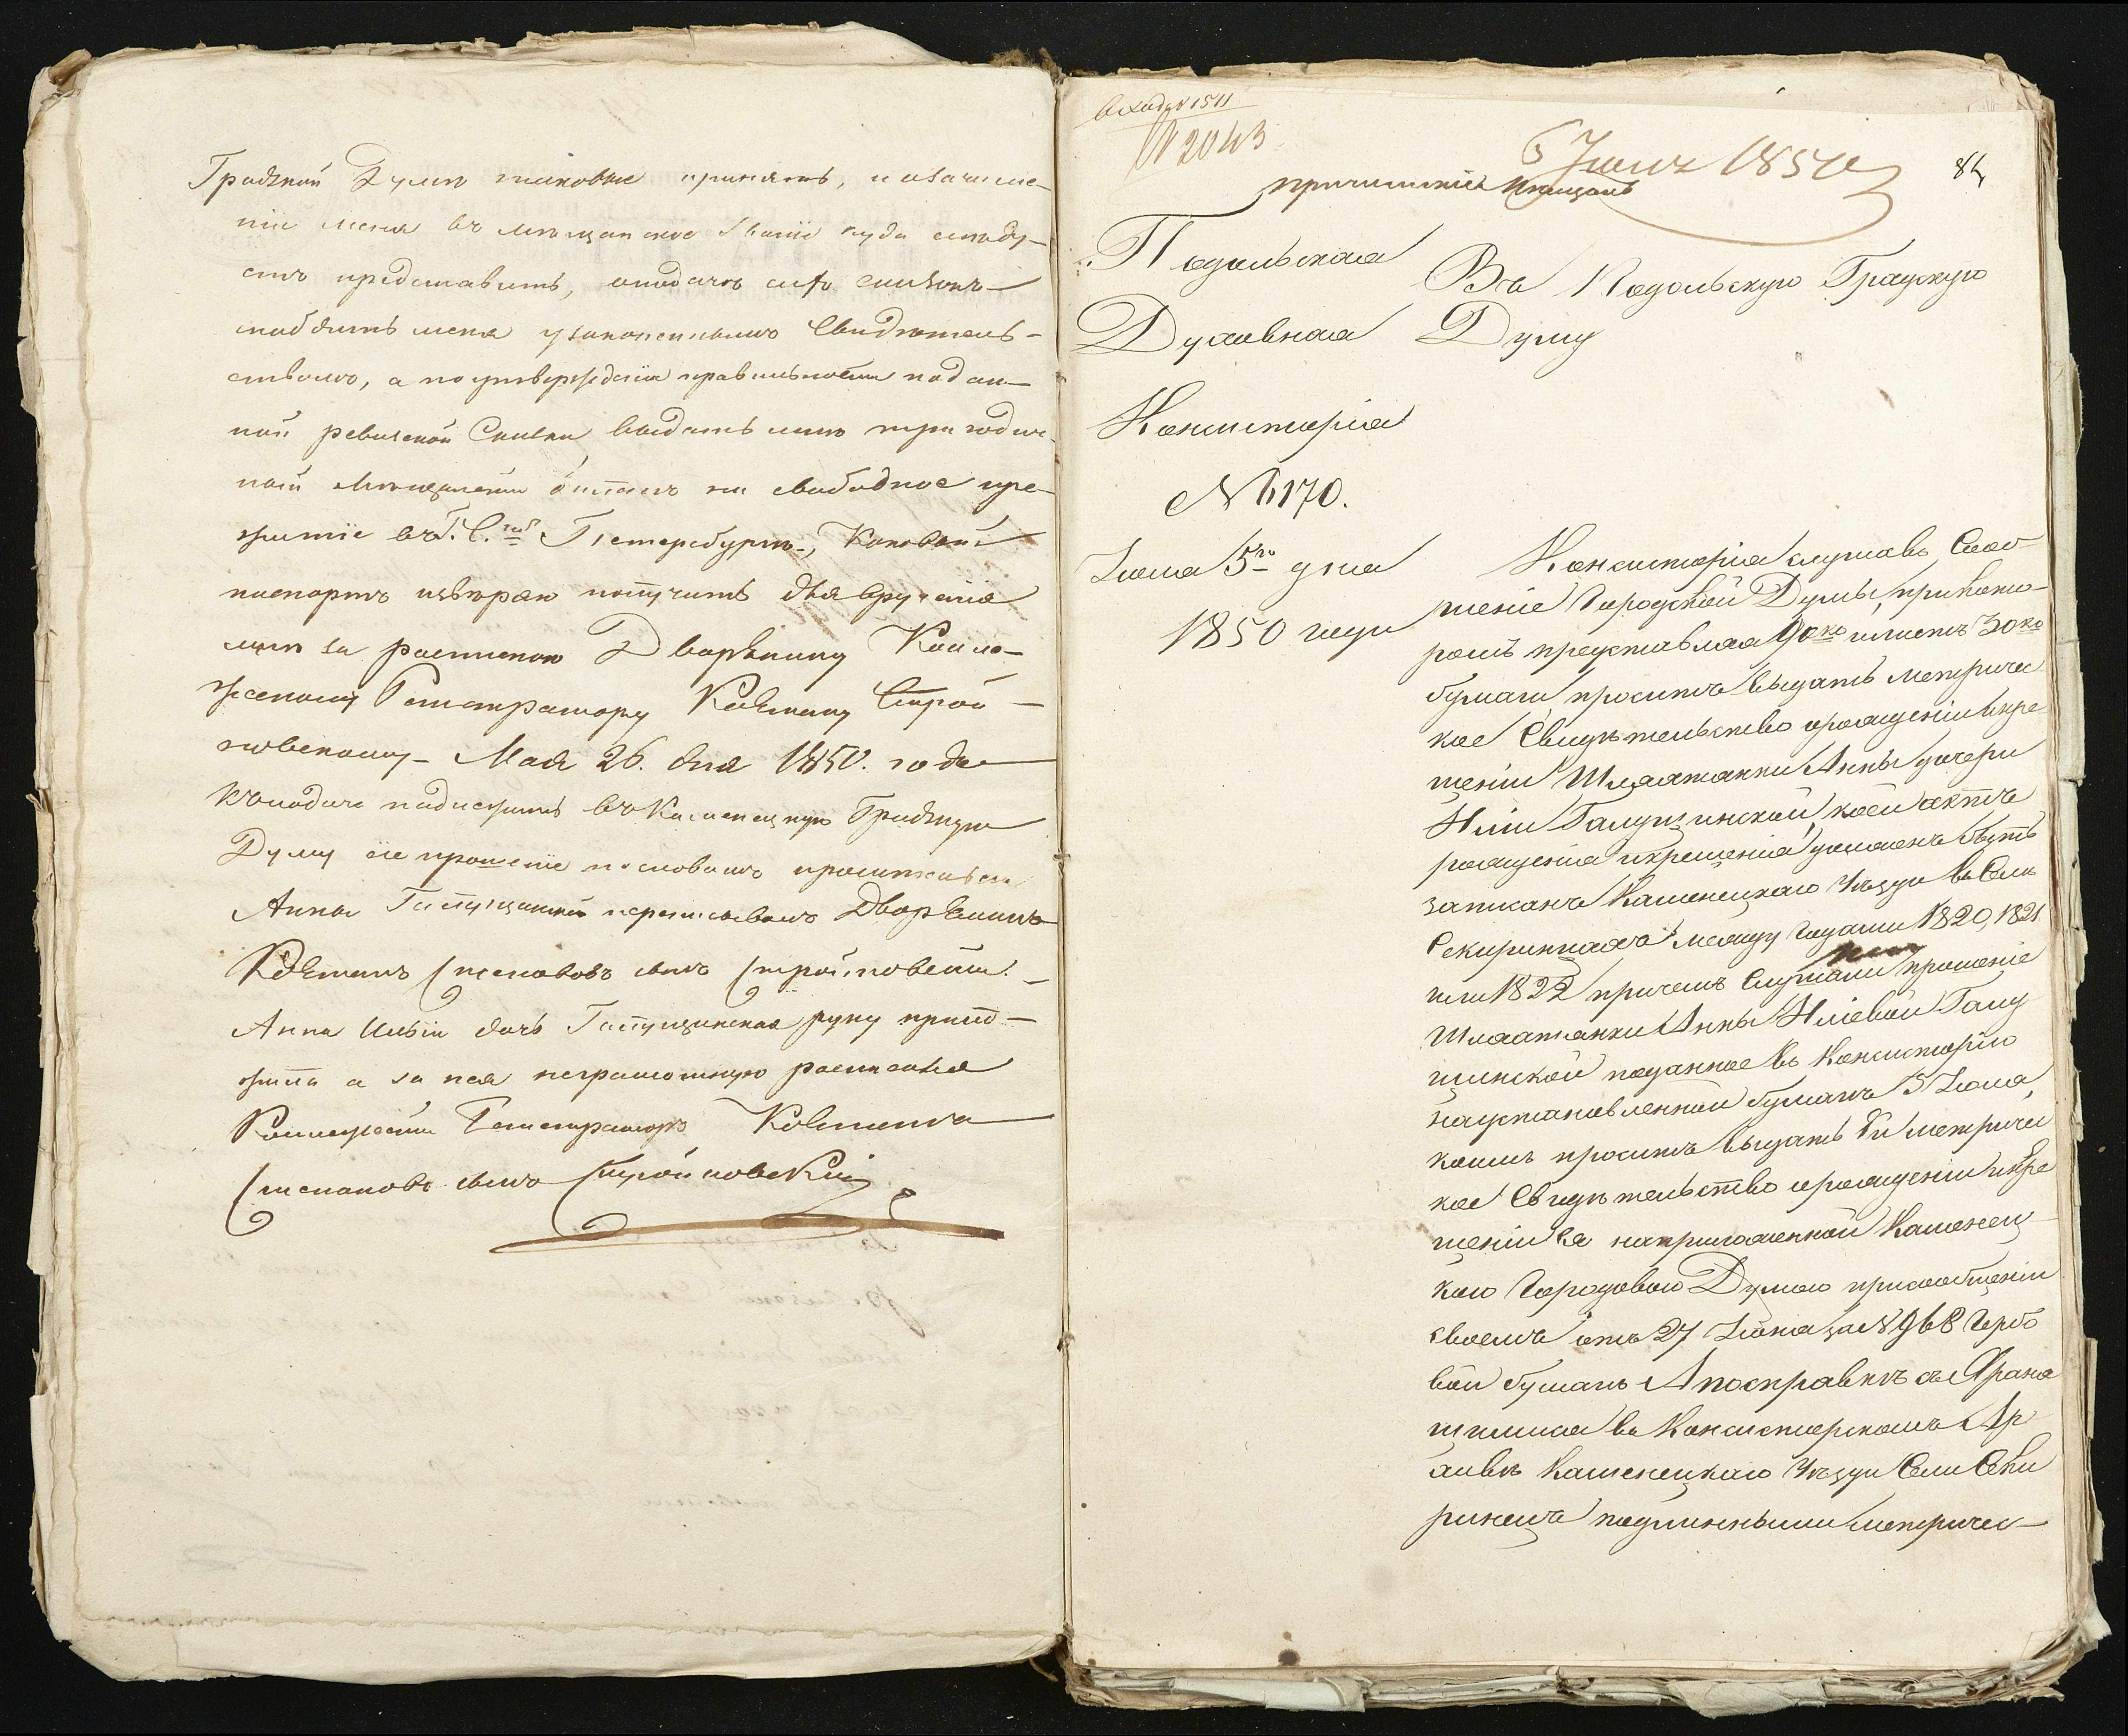 Градской Думы таковые принять, и о зачисле-
ніи меня въ мѣщанское званіе куда слѣду-
етъ представить, о подачѣ сихъ сказокъ
снабдить меня узаконеннымъ Свидѣтель-
ствомъ, а по утвержденіи правильности подан-
ной ревизской Сказки, выдать мнѣ три годич-
ный Мѣщанскій билетъ на свободное про-
житіе въ Г. С.тъ Петербургъ, каковый
паспортъ ввѣряю получить для врученія
мнѣ за роспискою Дворянину Колле-
жскому Регистратору Каэтану Строй-
новскому – Мая 26. дня 1850. года
Къ подачѣ надлежитъ въ Каменецкую Градскую
Думу сіе прошеніе по словамъ просительницы
Анны Галущинской переписывалъ Дворянинъ
Каэтанъ Степановъ сынъ Стройновскій. –
Анна Ильіи дочь Галущинская руку прило-
жила а за нея неграмотную росписался
Коллежскій Регистраторъ Каэтанъ
Степановъ сынъ Стройновскій
Входящ 1511
N 2043
5 Іюля 1850
84
Подольская
Духовная
Консисторія
№ 6170.
Іюля 5го дня
1850 года
Въ Подольскую Градскую
Думу
Консисторія слушавъ Сооб-
щеніе Городской Думы, при кото-
ромъ представляя 90ко и листъ 30ко
бумаги, проситъ выдать метричес
кое Свидѣтельство о рожденіи и кре
щеніи Шляхтянки Анны дочери
Иліи Галущинской, коей актъ
рожденія и крещенія долженъ быть
записанъ Каменецкаго Уѣзда въ Селѣ
Секиринцахъ между годами 1820, 1821
или 1822 причемъ Слушали прошеніе
Шляхтянки Анны Иліевой Галу
щинской поданное въ Консисторію
на установленной бумагѣ 5 Іюля,
коимъ проситъ выдать ей метричес
кое Свидѣтельство о рожденіи и кре
щеніи ея на приложенной Каменец
кою Городовою Думою при сообщеніи
своемъ отъ 27 Іюня за № 968 Гербо
вой бумагѣ А по справкѣ съ Храня
щимися въ Консисторскомъ Ар
хивѣ Каменецкаго Уѣзда Села Секи
ринецъ подлинными метричес-